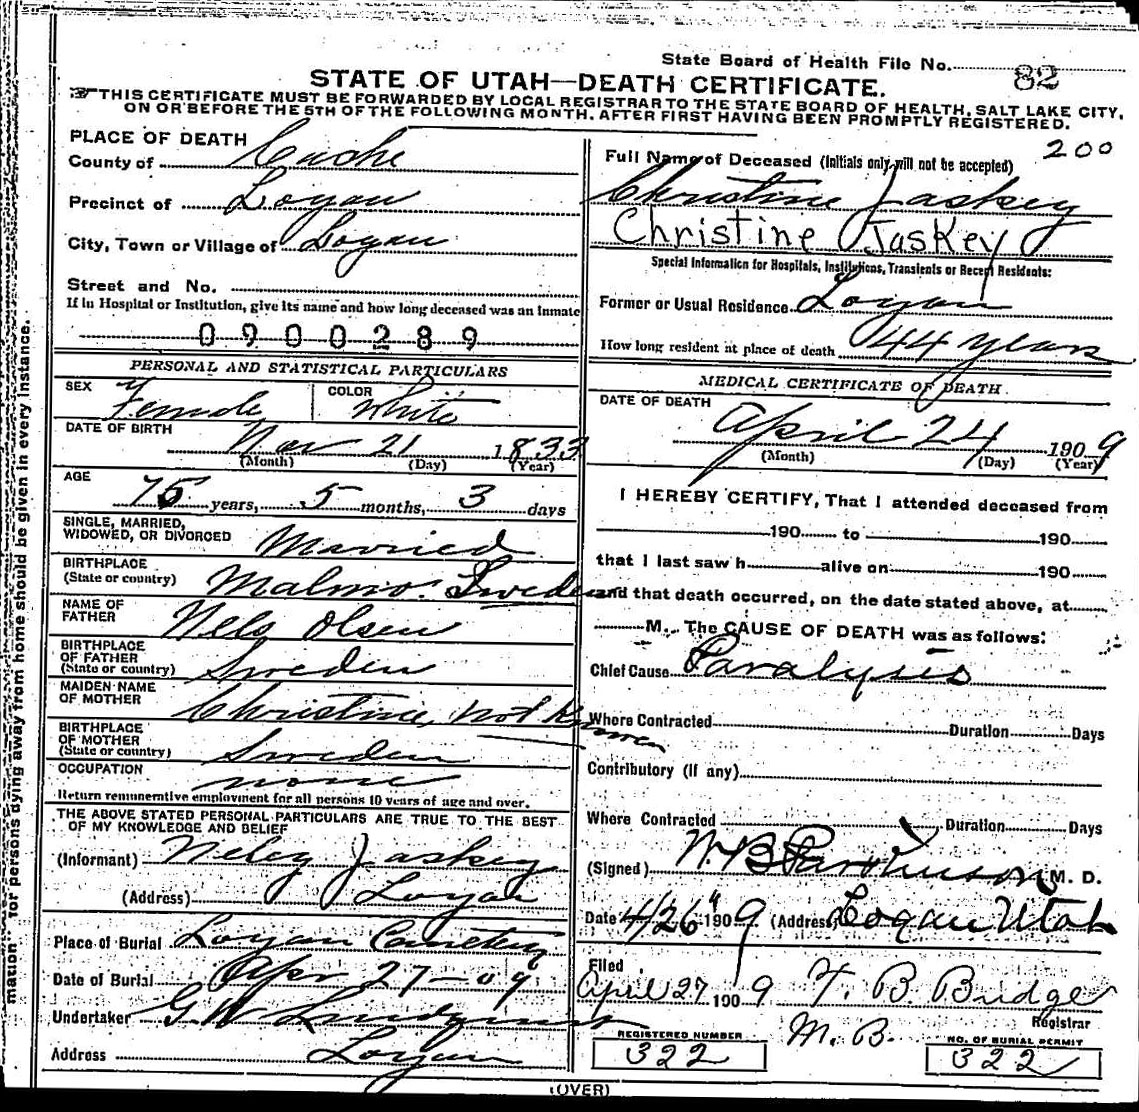 State Board of Health File No. 82
STATE OF UTAH—DEATH CERTIFICATE.
THIS CERTIFICATE MUST BE FORWARDED BY LOCAL REGISTRAR TO THE STATE BOARD OF HEALTH, SALT LAKE CITY,
ON OR BEFORE THE 5TH OF THE FOLLOWING MONTH, AFTER FIRST HAVING BEEN PROMPTLY REGISTERED.
PLACE OF DEATH
County of Cache
Precinct of Logan
City, Town or Village of Logan
Street and No.
If in Hospital or Institution, give its name and how long deceased was an Inmate
0900289
PERSONAL AND STATISTICAL PARTICULARS
SEX Female COLOR White
DATE OF BIRTH
Nov 21 1833
(Month) (Day) (Year)
AGE
75 years, 5 months, 3 days
SINGLE, MARRIED,
WIDOWED, OR DIVORCED Married
BIRTHPLACE
(State or country) Malmo. Sweden
NAME OF
FATHER Nels Olsen
BIRTHPLACE
OF FATHER
(State or country) Sweden
MAIDEN NAME
OF MOTHER Christine, not Known
BIRTHPLACE
OF MOTHER
(State or country) Sweden
OCCUPATION none
Return remunerative employment for all persons 10 years of age and over.
THE ABOVE STATED PERSONAL PARTICULARS ARE TRUE TO THE BEST
OF MY KNOWLEDGE AND BELIEF
(Informant) Jaskey
(Address) Logan
Place of Burial Logan Cemetery
Date of Burial Apr 27-09
Undertaker G. W. Lindquist
Address Logan
200
Full Name of Deceased (Initials only will not be accepted)
Christine Jaskey
Christine Jaskey
Special Information for Hospitals, Institutions, Transients or Recent Residents:
Former or Usual Residence Logan
How long resident at place of death 44 years
MEDICAL CERTIFICATE OF DEATH
DATE OF DEATH
April 24 1909
(Month) (Day) (Year)
I HEREBY CERTIFY, That I attended deceased from
190 to 190
that I last saw h alive on 190
and that death occurred, on the date stated above, at
M. The CAUSE OF DEATH was as follows:
Chief Cause Paralysis
Where Contracted Duration Days
Contributory (if any)
Where Contracted Duration Days
(Signed) W. B. Parkinson M. D.
Date 4/26" 1909 (Address) Logan Utah
Filed
April 27 1909 F. B. Bridge
Registrar
M. B.
REGISTERED NUMBER
322
NO. OF BURIAL PERMIT
322
(OVER)
mation" for persons dying away from home should be given in every instance.